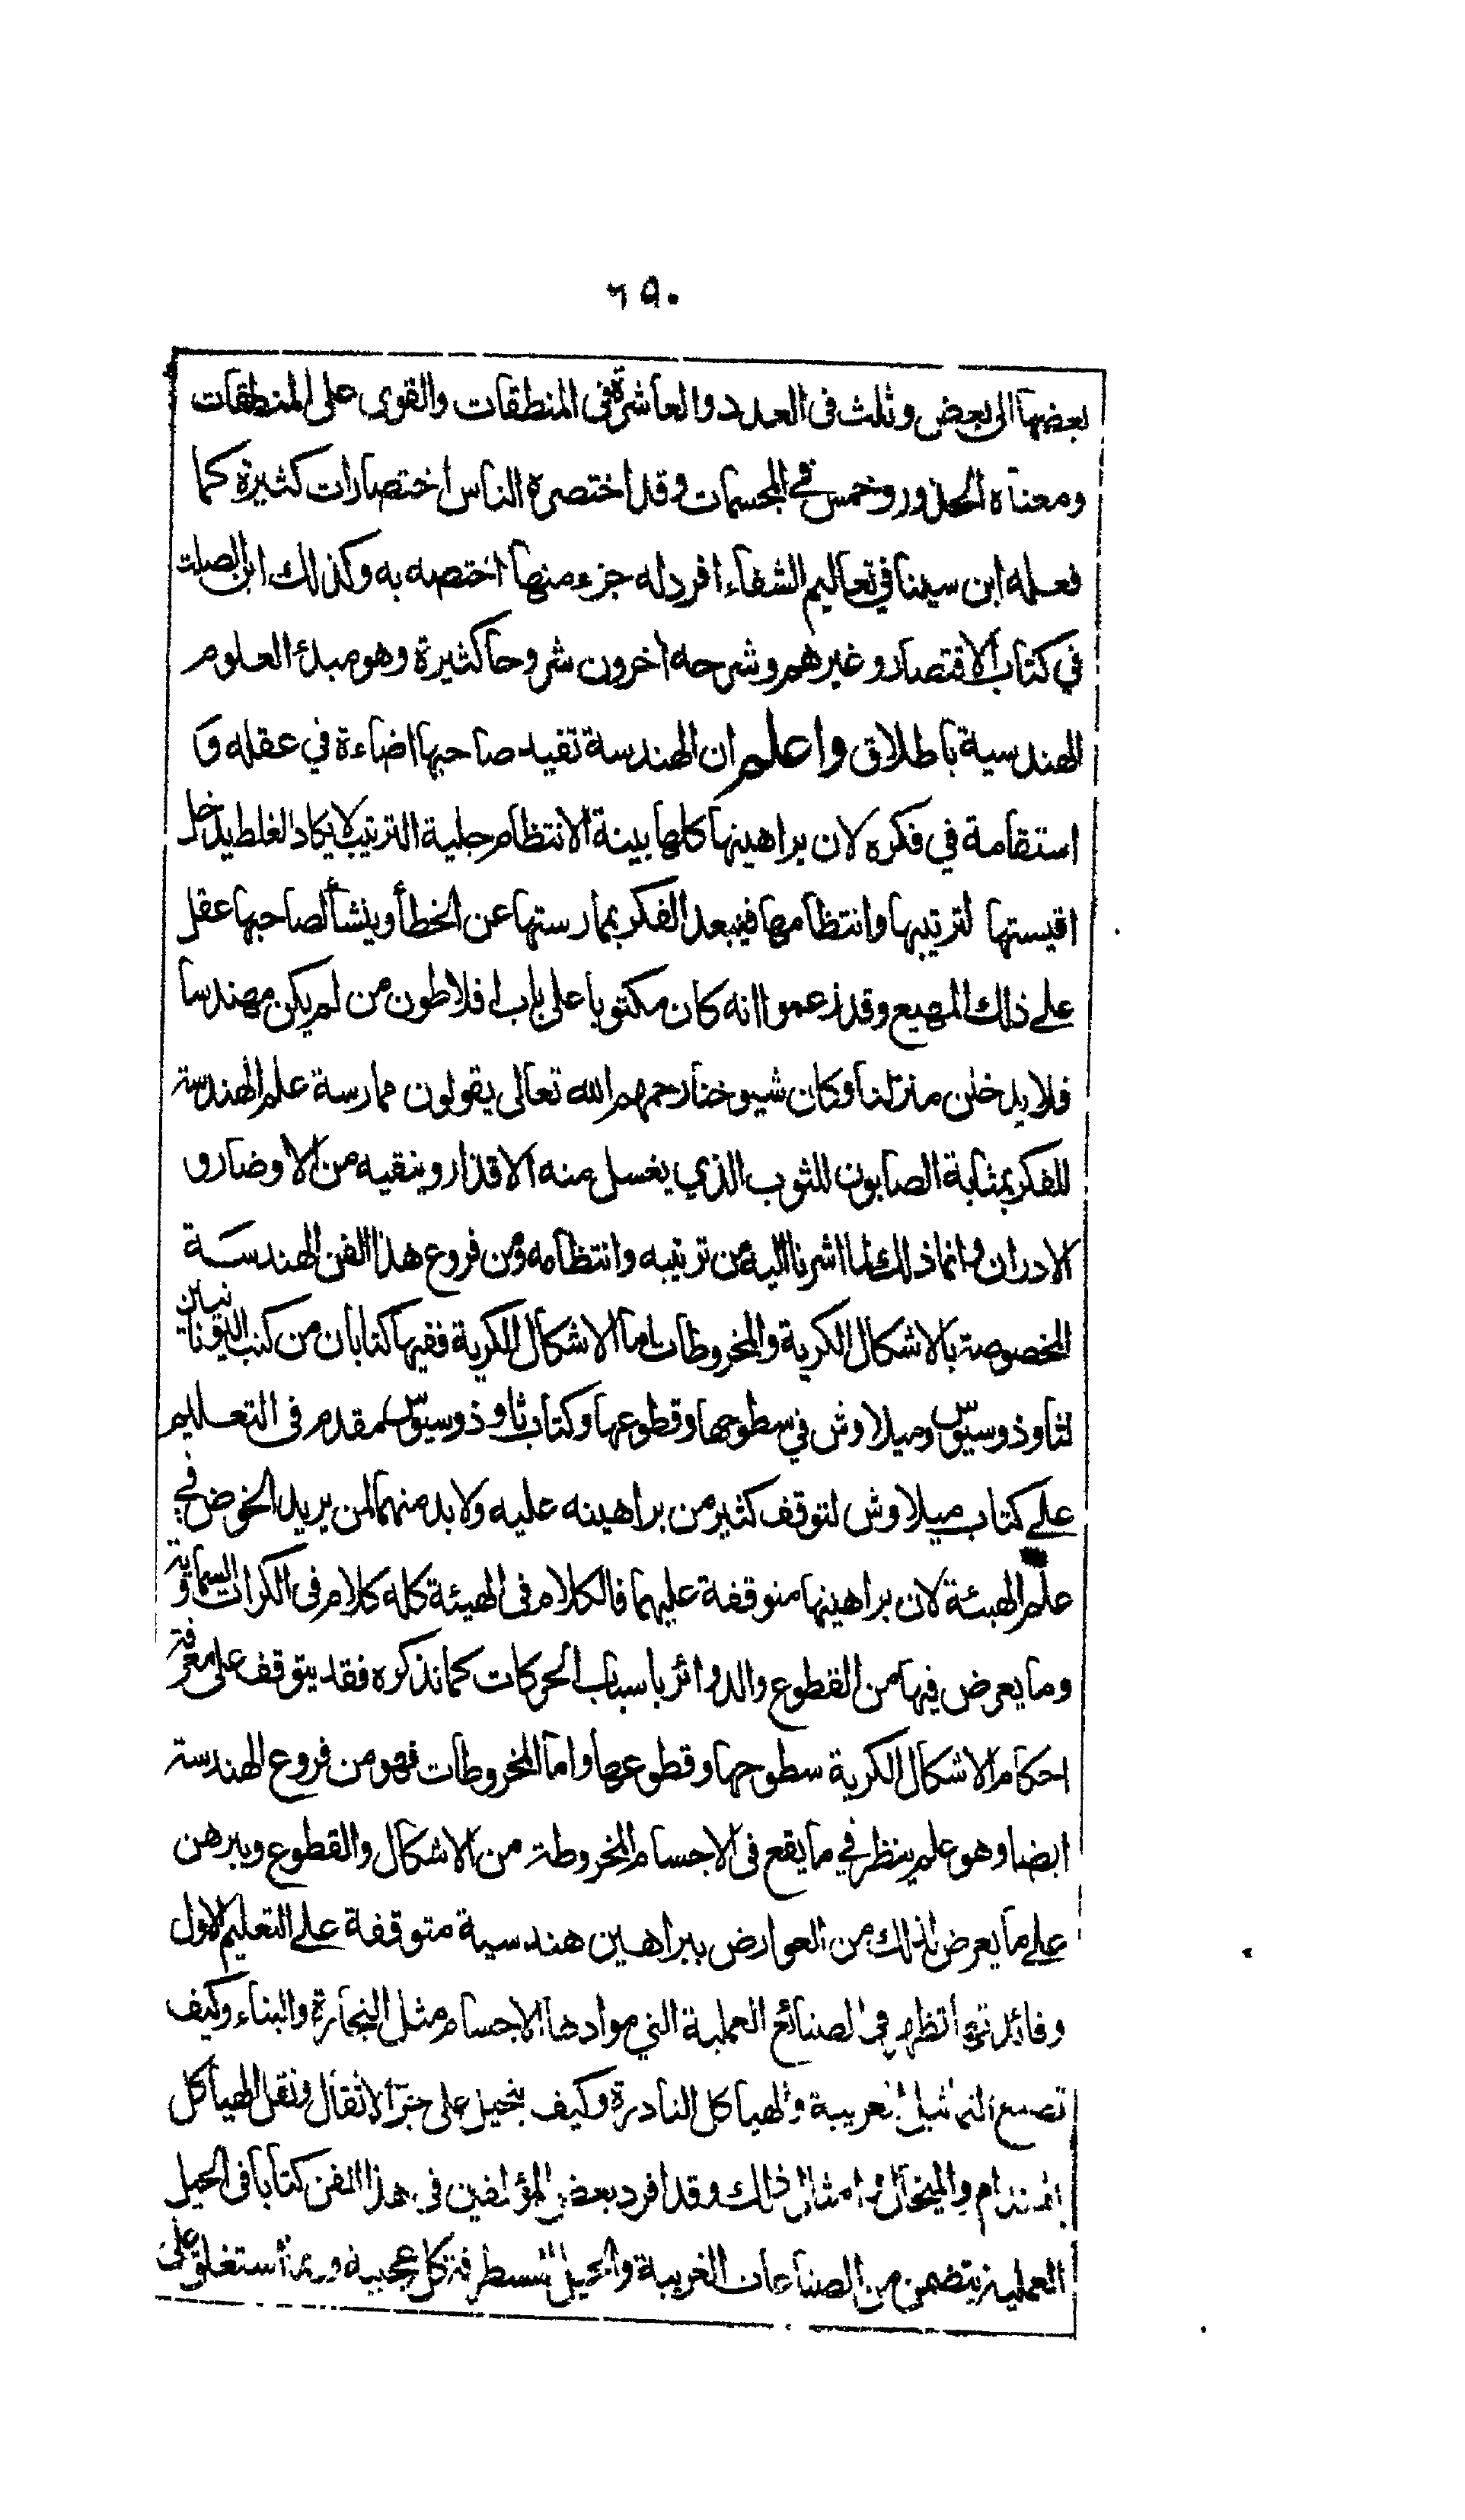 ٦٥٠
بعضها الى بعض وثلث فى العدد والعاشرة فى المنطقات والقوى على المنطقات
ومعناه الحذور وخمس فى المجسمات وقد اختصره الناس اختصارات كثيرة كما
فعله ابن سينا في تعاليم الشفاء افرد له جزء منها اختصه به وكذلك ابن الصلت
في كتاب الاقتصار وغيرهم وشرحه اخرون شروحا كثيرة وهو مبدء العلوم
الهندسية باطلاق واعلم ان الهندسة تفيد صاحبها اضاءة في عقله و
استقامة في فكره لان براهينها كلها بينة الانتظام جلية الترتيب لا يكاد الغلط يدخل
اقيستها لترتيبها وانتظامها فيبعد الفكر بممارستها عن الخطأ وينشأ لصاحبها عقل
على ذلك المهيع وقد زعموا انه كان مكتوبا على باب افلاطون من لم يكن مهندسا
فلا يدخلن منزلنا وكان شيوخنا رحمهم الله تعالى يقولون ممارسة علم الهندسة
للفكر بمثابة الصابون للثوب الذي يغسل منه الاقذار وينقيه من الاوضار و
الادران وانما ذلك لما اشرنا اليه من ترتيبه وانتظامه ومن فروع هذا الفن الهندسة
المخصوصة بالاشكال الكرية والمخروطات اما الاشكال الكرية ففيها كتابان من كتب اليونانيين
لثاوذوسيوس وميلاوش في سطوحها وقطوعها وكتاب ثاوذوسيوس مقدم فى التعليم
على كتاب ميلاوش لتوقف كثير من براهينه عليه ولا بد منهما لمن يريد الخوض في
علم الهيئة لان براهينها متوقفة عليهما فالكلام فى الهيئة كله كلام فى الكرات السماوية و
وما يعرض فيها من القطوع والدوائر باسباب الحركات كما نذكره فقد يتوقف على معرفة
احكام الاشكال الكرية سطوحها وقطوعها واما المخروطات فهو من فروع الهندسة
ايضا وهو علم ينظر في ما يقع فى الاجسام المخروطة من الاشكال والقطوع ويبرهن
على ما يعرض لذلك من العوارض ببراهين هندسية متوقفة على التعليم الاول
وفائدتها تظهر فى الصنائع العملية التي موادها الاجسام مثل النجارة والبناء وكيف
تصنع التماثيل الغريبة والهياكل النادرة وكيف يتحيل على جر الاثقال ونقل الهياكل
بالهندام والميخال وامثال ذلك وقد افرد بعض المؤلفين فى هذا الفن كتابا فى الحيل
العملية يتضمن من الصناعات الغريبة والحيل المستطرفة كل عجيبة وربما استغلق على